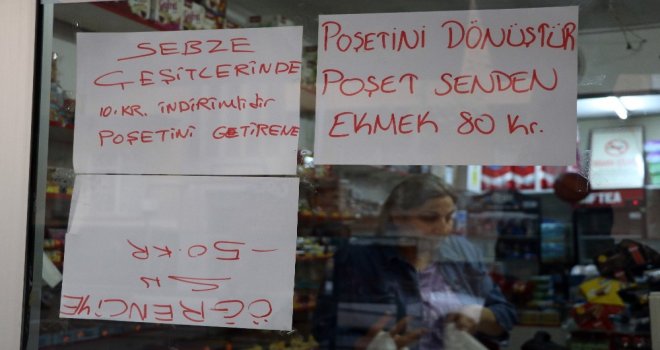 SEBZE
ÇEŞİTLERİNDE
10.KR. İNDİRİMLİDİR
POŞETİNİ GETİRENE
POŞETİNİ DÖNÜŞTÜR
POŞET SENDEN
EKMEK 80 Kr.
ÖĞRENCİYE
SU
- 50.KR